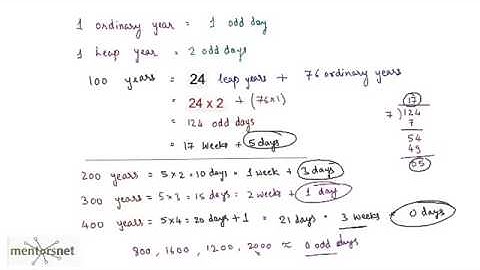 1 ordinary year = 1 odd day
1 leap year = 2 odd days
100 years = 24 leap years + 76 ordinary years
= 24 x 2 + (76x1)
= 124 odd days
= 17 weeks + 5 days
17
7)124
7
54
49
05
200 years = 5x2 = 10 days = 1 week + 3 days
300 years = 5x3 = 15 days = 2 weeks + 1 day
400 years = 5x4 = 20 days + 1 = 21 days = 3 weeks + 0 days
800, 1600, 1200, 2000 ≈ 0 odd days
mentorsnet